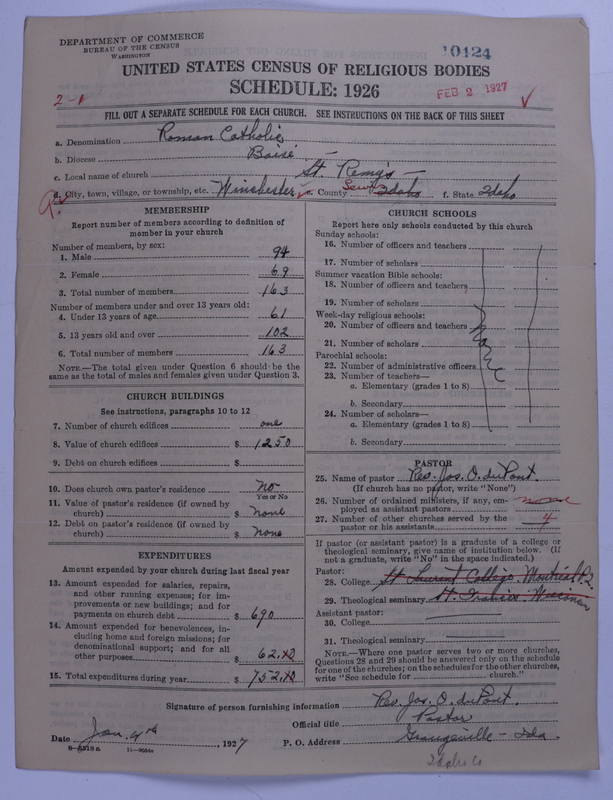 DEPARTMENT OF COMMERCE
BUREAU OF THE CENSUS
WASHINGTON
10424
UNITED STATES CENSUS OF RELIGIOUS BODIES
SCHEDULE: 1926
FEB 2 1927
2-1
FILL OUT A SEPARATE SCHEDULE FOR EACH CHURCH. SEE INSTRUCTIONS ON THE BACK OF THIS SHEET
a. Denomination Roman Catholic
b. Diocese Boise
c. Local name of church St. Remy's
d. City, town, village, or township, etc. Winchester e. County Idaho f. State Idaho
MEMBERSHIP
Report number of members according to definition of
member in your church
Number of members, by sex:
1. Male 94
2. Female 69
3. Total number of members 163
Number of members under and over 13 years old:
4. Under 13 years of age 61
5. 13 years old and over 102
6. Total number of members 163
NOTE.—The total given under Question 6 should be the
same as the total of males and females given under Question 3.
CHURCH BUILDINGS
See instructions, paragraphs 10 to 12
7. Number of church edifices one
8. Value of church edifices $ 1250
9. Debt on church edifices $
10. Does church own pastor's residence No
Yes or No
11. Value of pastor's residence (if owned by
church) $ none
12. Debt on pastor's residence (if owned by
church) $ none
EXPENDITURES
Amount expended by your church during last fiscal year
13. Amount expended for salaries, repairs,
and other running expenses; for im-
provements or new buildings; and for
payments on church debt $ 690
14. Amount expended for benevolences, in-
cluding home and foreign missions; for
denominational support; and for all
other purposes $ 62.
15. Total expenditures during year $ 752.
CHURCH SCHOOLS
Report here only schools conducted by this church
Sunday schools:
16. Number of officers and teachers
17. Number of scholars
Summer vacation Bible schools:
18. Number of officers and teachers
19. Number of scholars
Week-day religious schools:
20. Number of officers and teachers
21. Number of scholars
Parochial schools:
22. Number of administrative officers
23. Number of teachers—
a. Elementary (grades 1 to 8)
b. Secondary
24. Number of scholars—
a. Elementary (grades 1 to 8)
b. Secondary
None
PASTOR
25. Name of pastor Rev. Jos. O. duPont.
(If church has no pastor, write "None")
26. Number of ordained ministers, if any, em-
ployed as assistant pastors none
27. Number of other churches served by the
pastor or his assistants 4
If pastor (or assistant pastor) is a graduate of a college or
theological seminary, give name of institution below. (If
not a graduate, write "No" in the space indicated.)
Pastor:
28. College St Laurent College, Montreal P.Q.
29. Theological seminary St.
Assistant pastor:
30. College
31. Theological seminary
NOTE.—Where one pastor serves two or more churches,
Questions 28 and 29 should be answered only on the schedule
for one of the churches; on the schedules for the other churches,
write "See schedule for church."
Signature of person furnishing information Rev. Jos. O. duPont
Official title Pastor
Date Jan. 4th, 1927 P. O. Address Grangeville - Ida
Idaho Co